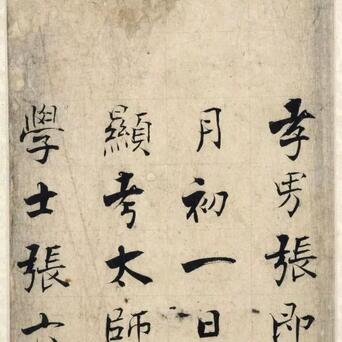 孝男張即
月初一日
顯考太師
學士張六